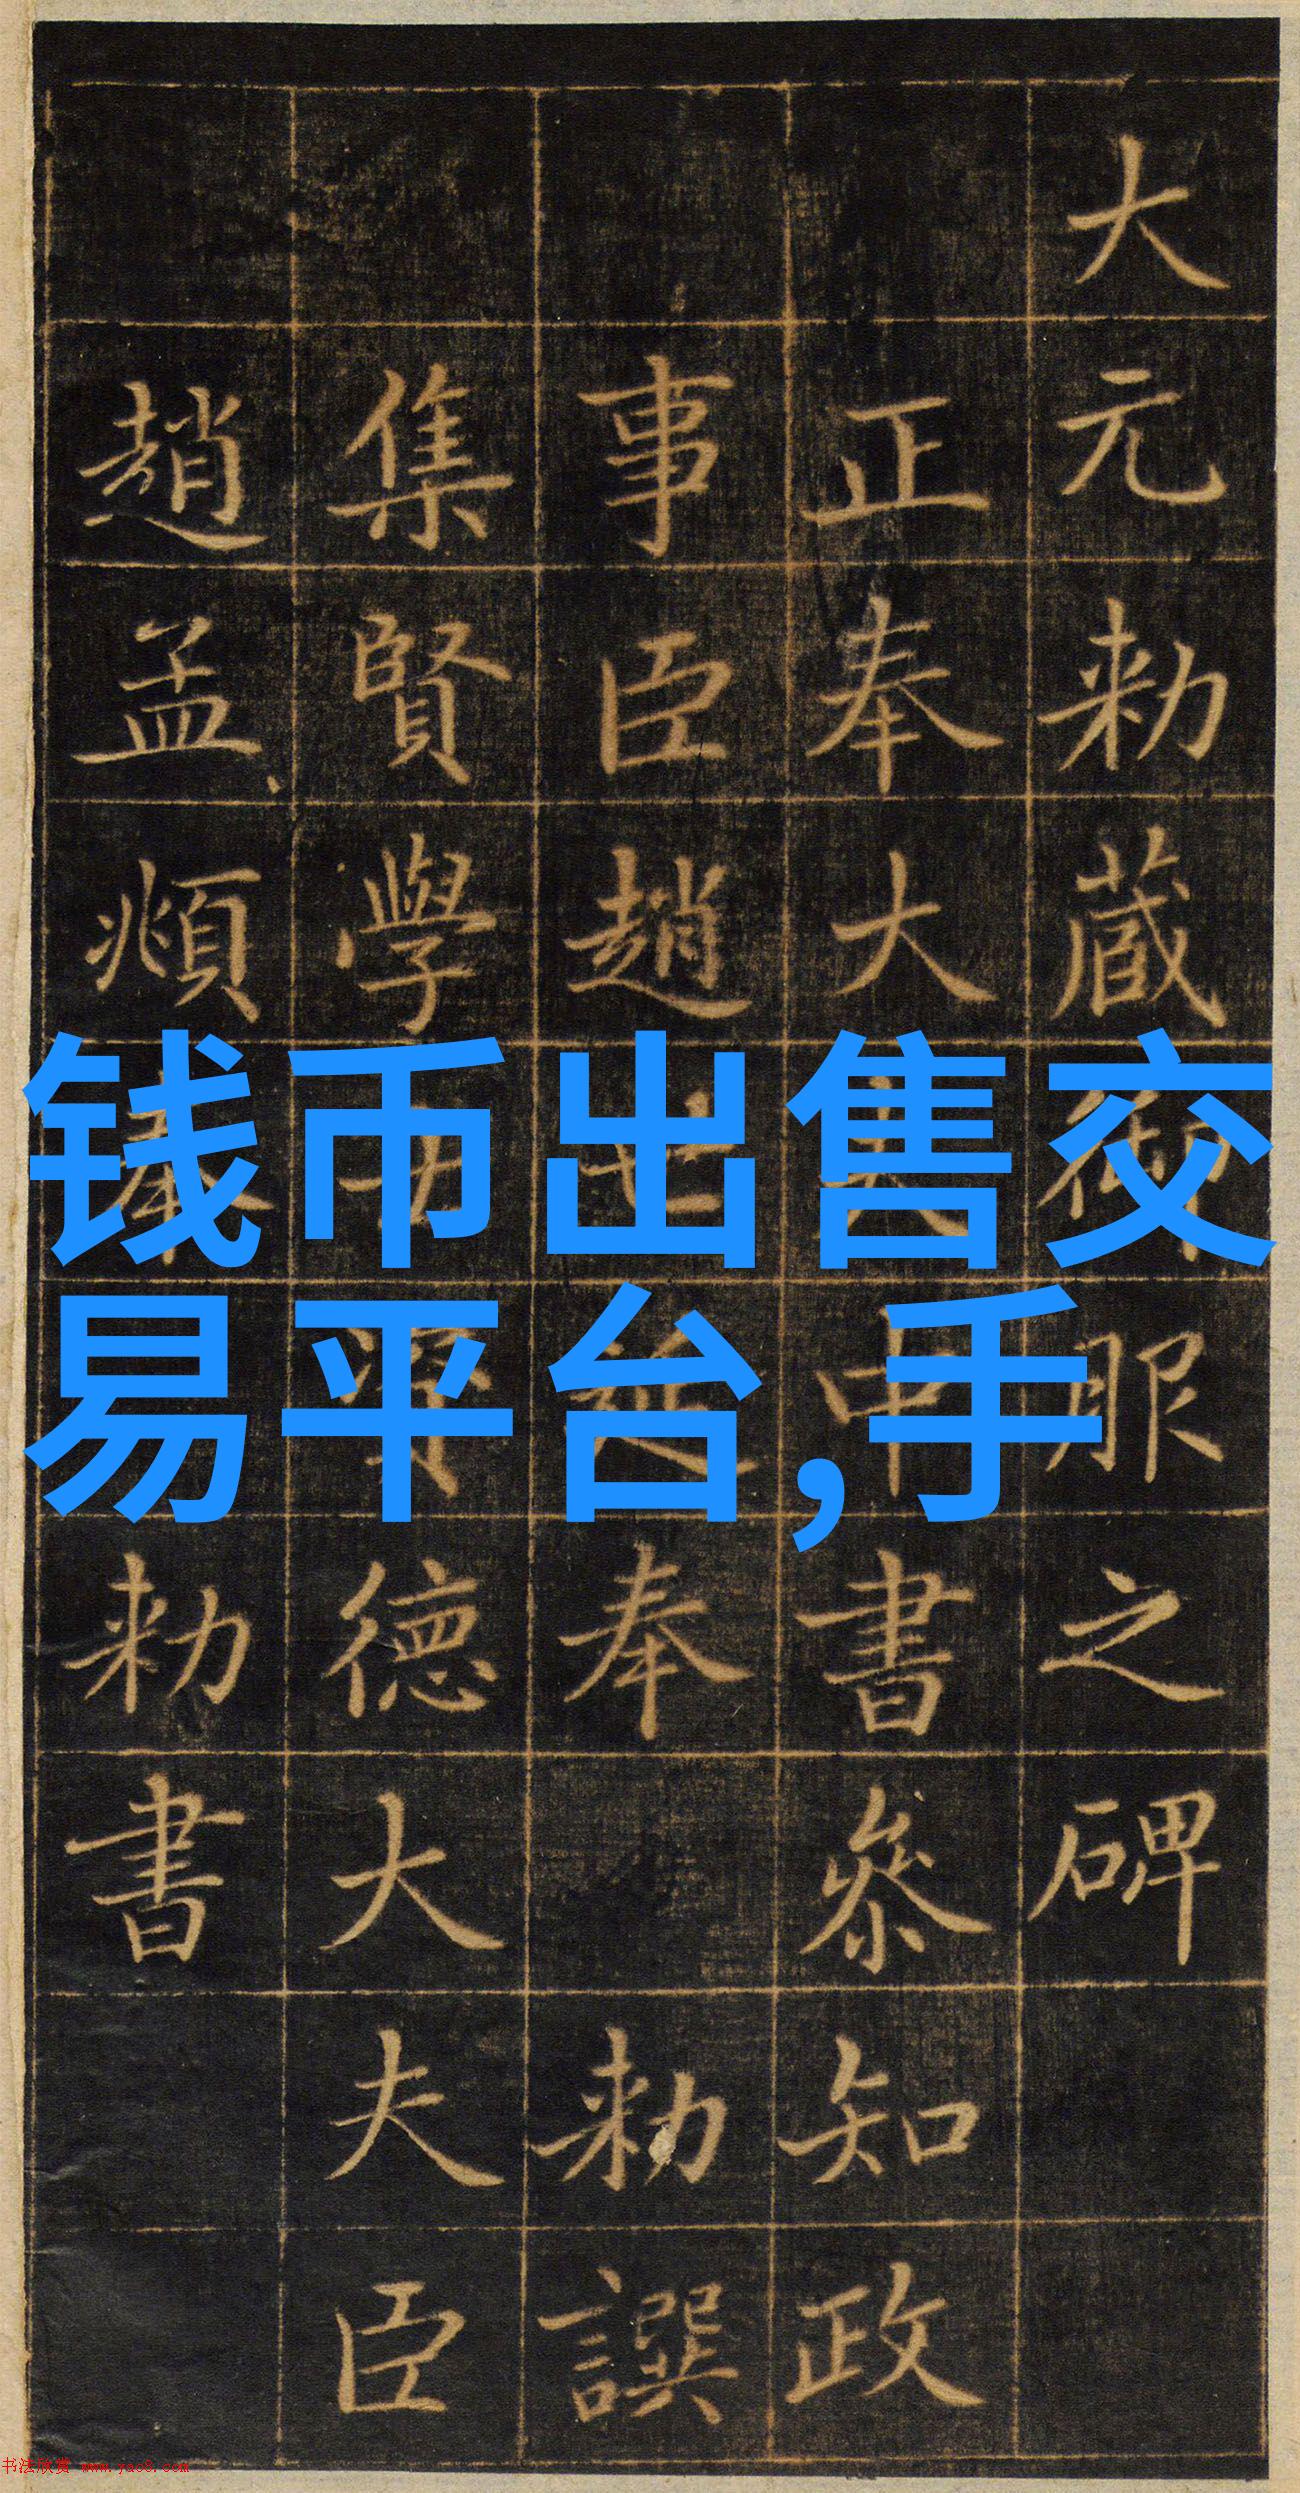 大元勅藏御服之碑
正奉大夫中書參知政
事臣趙世延奉勅譔
集賢學德大夫臣
趙孟頫奉勅書
钱币出售交
易平台,手
书法欣赏 www.yac8.com